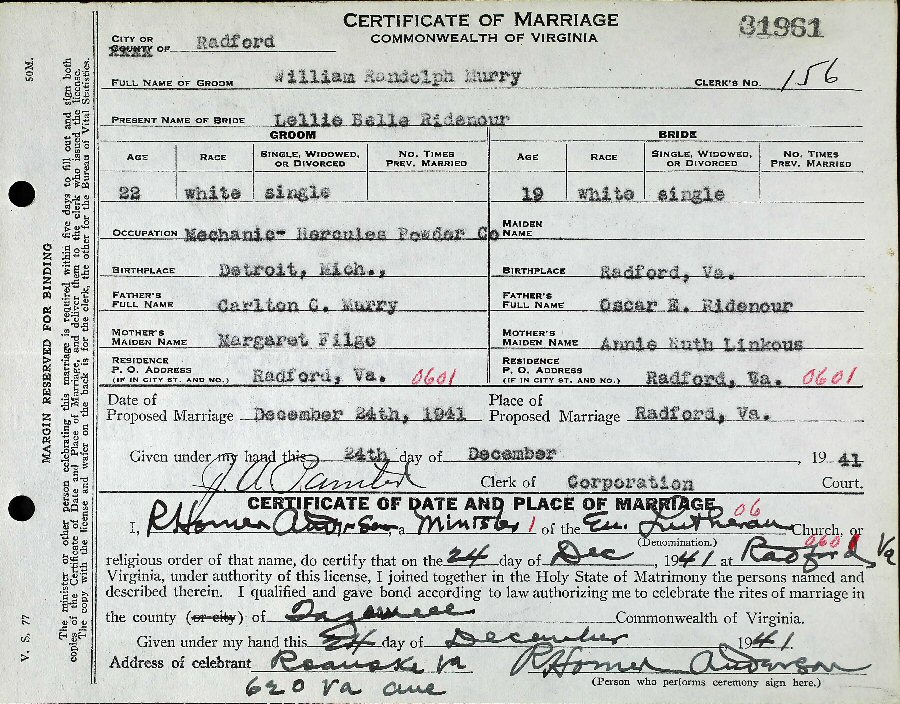 CERTIFICATE OF MARRIAGE
COMMONWEALTH OF VIRGINIA
31961
CITY OR
COUNTY OF Radford
FULL NAME OF GROOM William Randolph Murry
CLERK'S NO. 156
PRESENT NAME OF BRIDE Lellie Belle Ridenour
GROOM BRIDE
AGE RACE SINGLE, WIDOWED, OR DIVORCED NO. TIMES PREV. MARRIED AGE RACE SINGLE, WIDOWED, OR DIVORCED NO. TIMES PREV. MARRIED
22 white single 19 white single
OCCUPATION Mechanic- Hercules Powder Co MAIDEN NAME
BIRTHPLACE Detroit, Mich., BIRTHPLACE Radford, Va.
FATHER'S FULL NAME Carlton C. Murry FATHER'S FULL NAME Oscar E. Ridenour
MOTHER'S MAIDEN NAME Margaret Filgo MOTHER'S MAIDEN NAME Annie Ruth Linkous
RESIDENCE P. O. ADDRESS (IF IN CITY ST. AND NO.) Radford, Va. 0601 RESIDENCE P. O. ADDRESS (IF IN CITY ST. AND NO.) Radford, Va. 0601
Date of Proposed Marriage December 24th, 1941 Place of Proposed Marriage Radford, Va.
Given under my hand this 24th day of December, 1941
Clerk of Corporation Court.
CERTIFICATE OF DATE AND PLACE OF MARRIAGE
06
I, R Homer Anderson, a Minister 1 of the Ev. Lutheran Church, or
(Denomination.) 0601
religious order of that name, do certify that on the 24 day of Dec, 1941 at Radford Va
Virginia, under authority of this license, I joined together in the Holy State of Matrimony the persons named and
described therein. I qualified and gave bond according to law authorizing me to celebrate the rites of marriage in
the county (or city) of Tazewell Commonwealth of Virginia.
Given under my hand this 24 day of December 1941.
Address of celebrant Roanoke Va R Homer Anderson
620 Va ave (Person who performs ceremony sign here.)
50M.
MARGIN RESERVED FOR BINDING
V. S. 77
The minister or other person celebrating this marriage is required within five days to fill out and sign both
copies of the Certificate of Date and Place of Marriage, and deliver them to the clerk who issued the license.
The copy with the license and wafer on the back is for the clerk, the other for the Bureau of Vital Statistics.